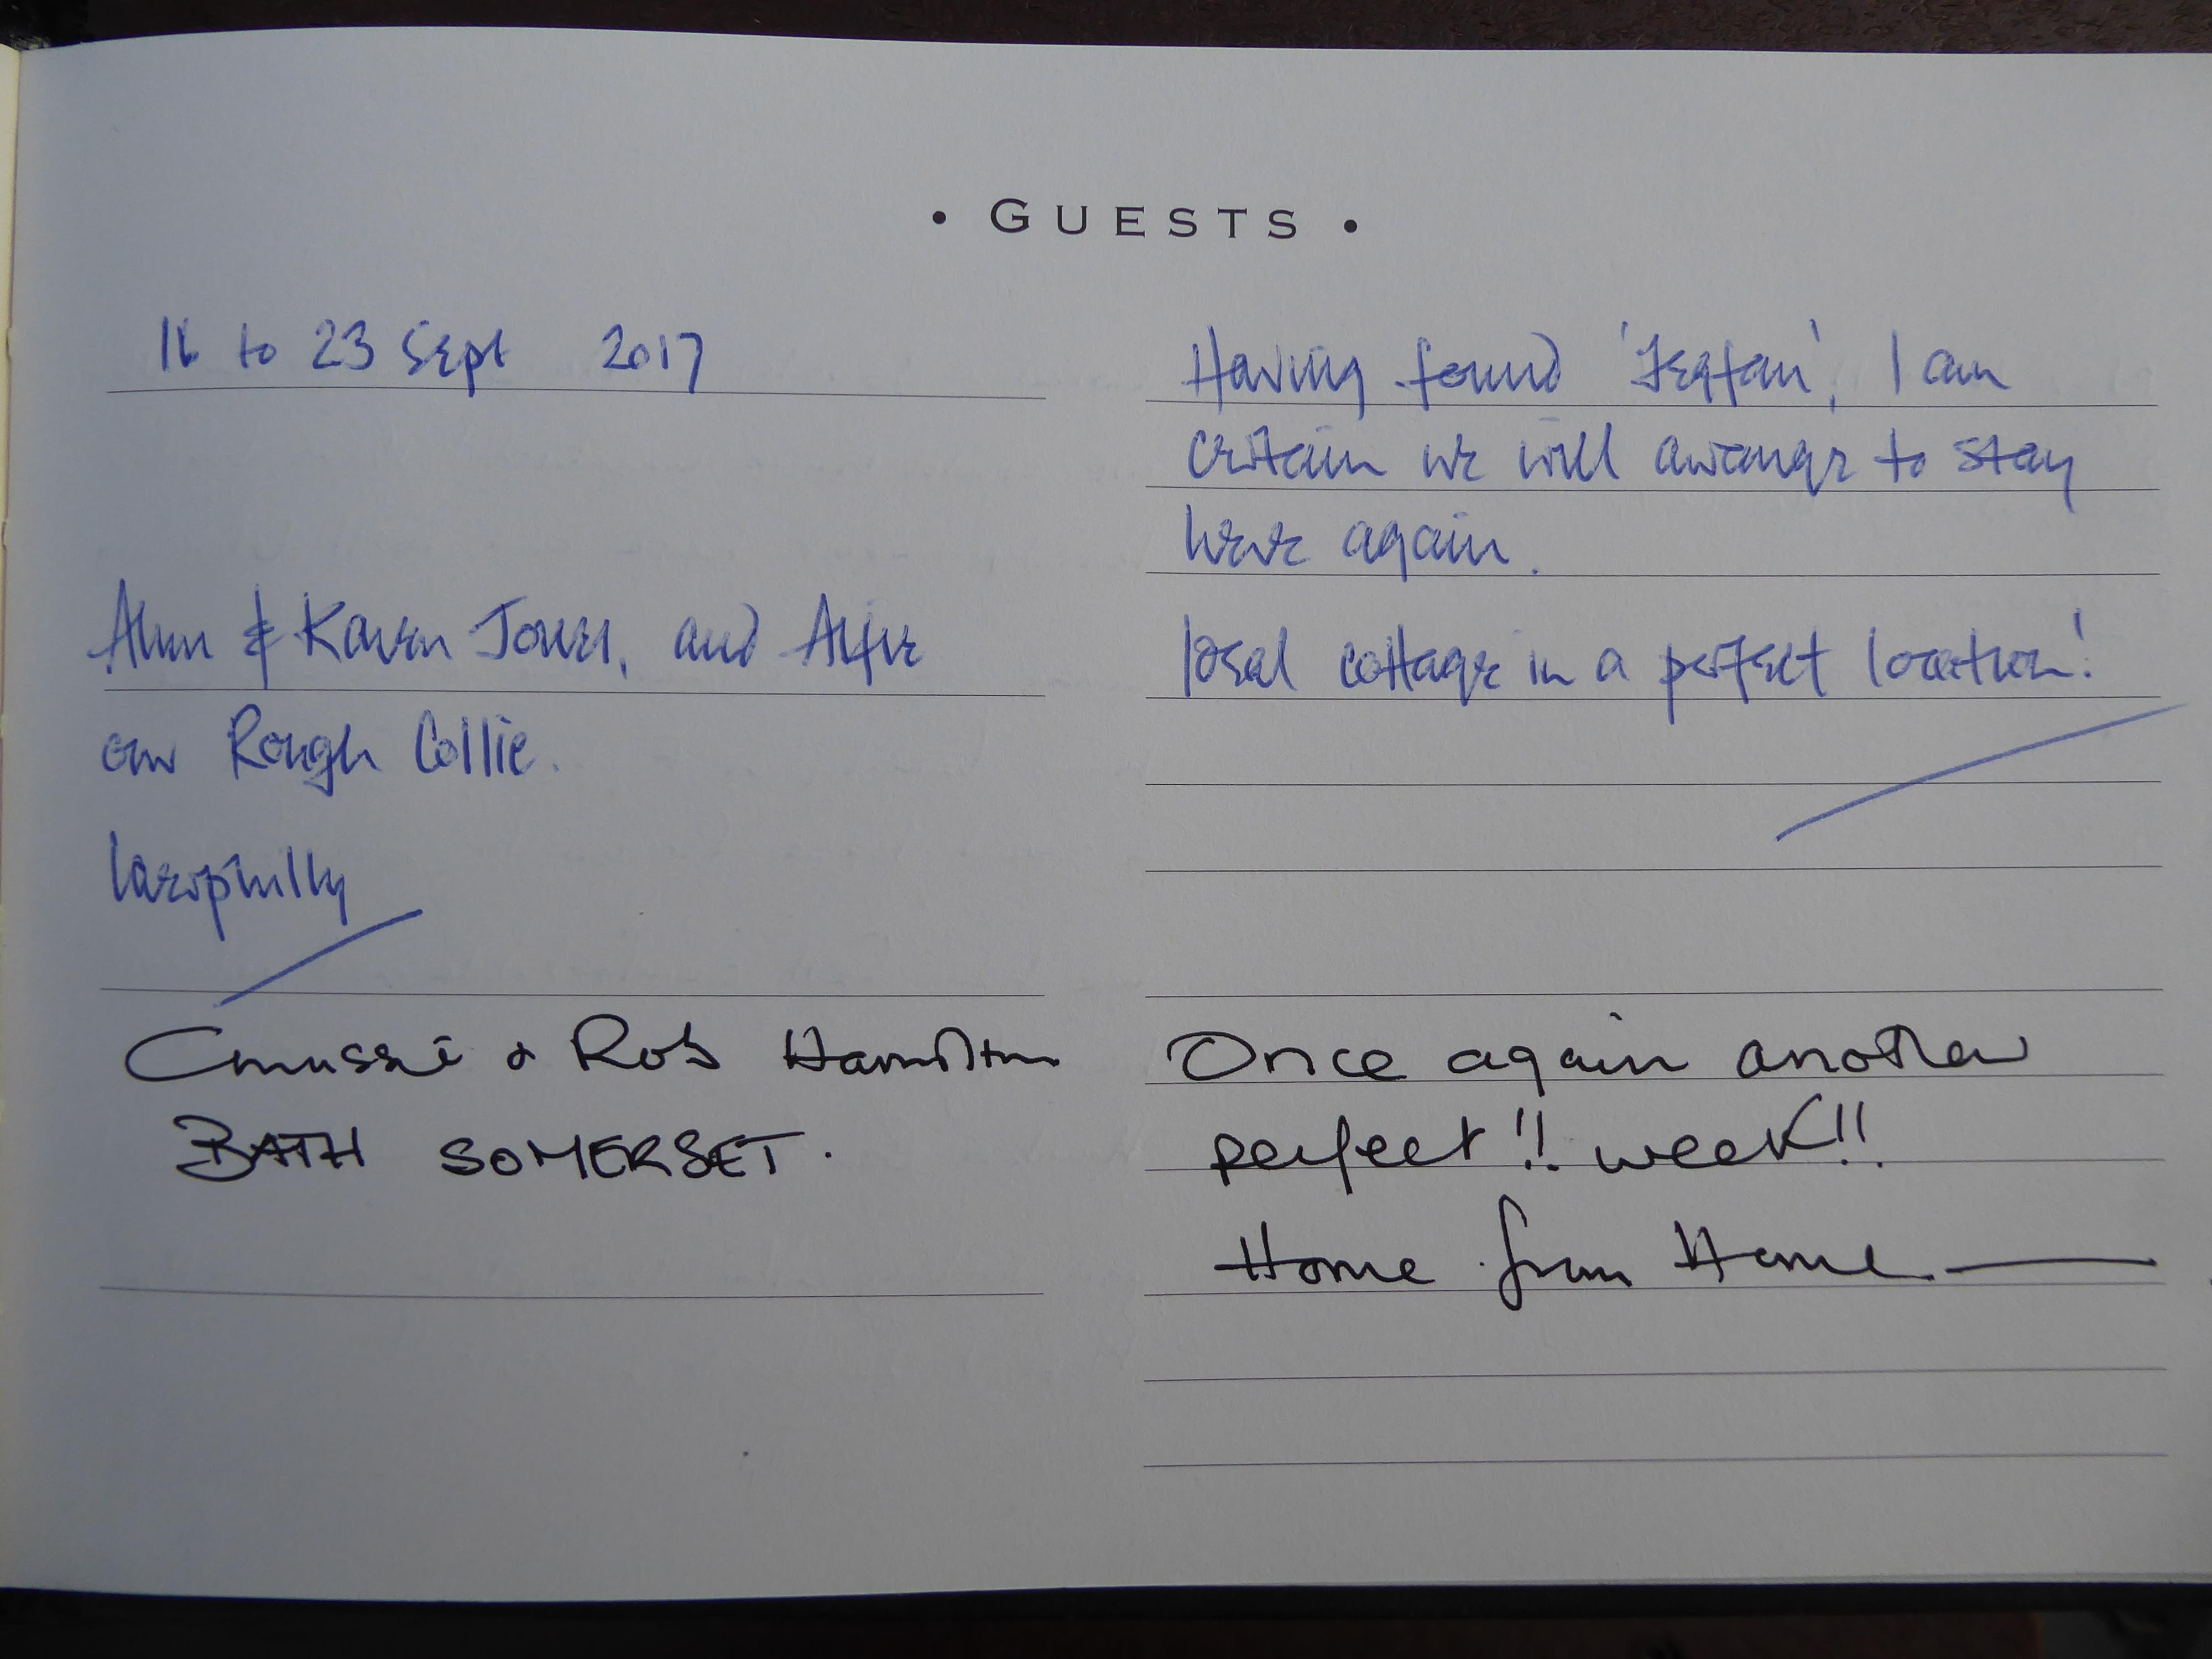 • GUESTS •
16 to 23 Sept 2017
Alun & Karen Jones, and Alfie
our Rough Collie.
Caerphilly
Having found ' ', I am
certain we will arrange to stay
here again.
Ideal cottage in a perfect location!
& Rob Hamilton
BATH SOMERSET.
Once again another
perfect!! week!!
Home from Home